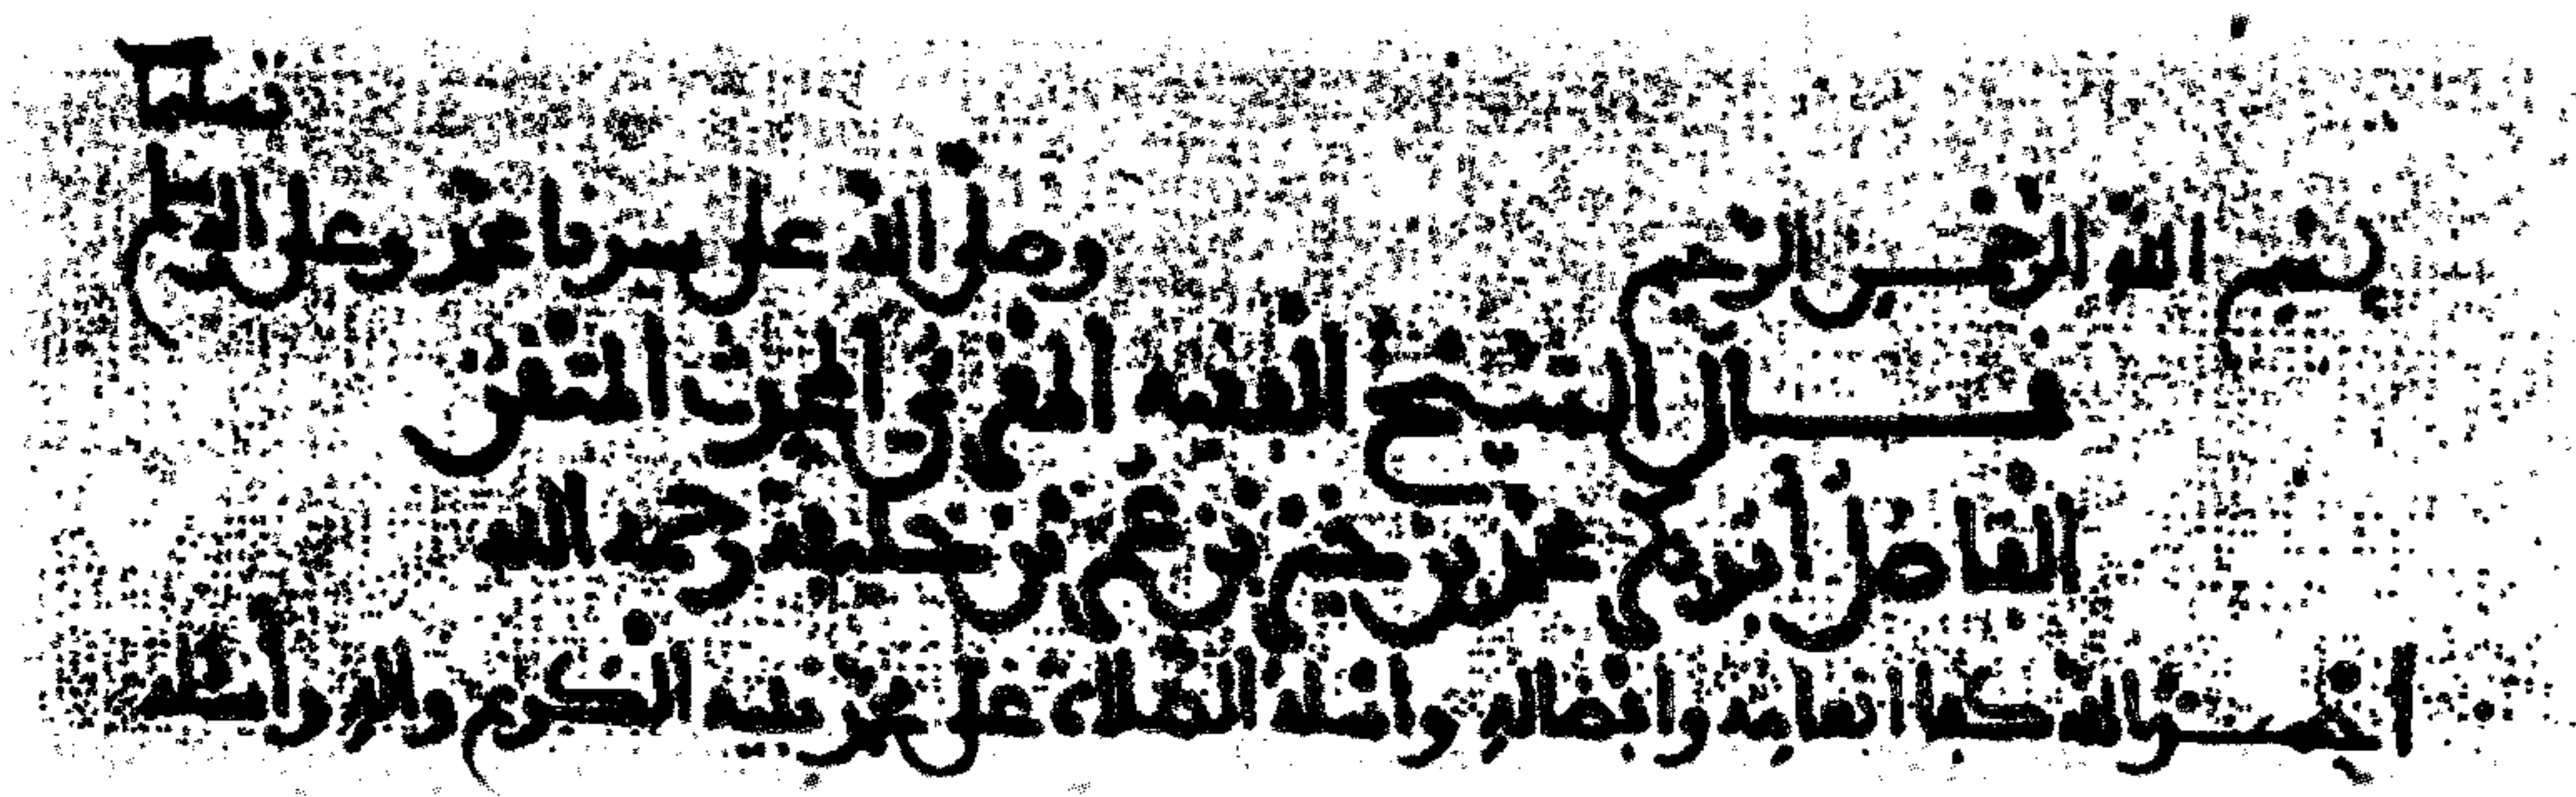 تسليما
بسم الله الرحمن الرحيم وصلى الله على سيدنا محمد وعلى اله وسلم
قال الشيخ الفقيه المقرئ المحدث المتقن
الفاضل أبو بكر محمد بن خير بن عمر بن خليفة رحمه الله
الحمد لله كفاء انعامه وافضاله واسله الصلاة على محمد نبيه الكريم واله وأسئله